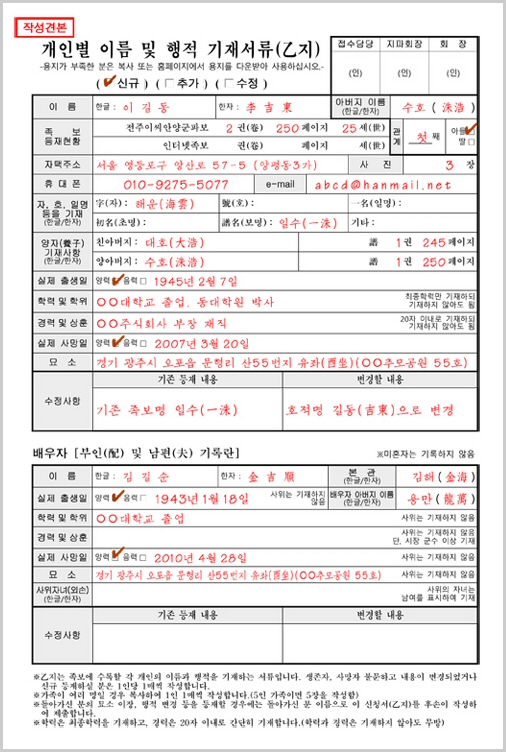 작성견본
개인별 이름 및 행적 기재서류(乙지)
-용지가 부족한 분은 복사 또는 홈페이지에서 용지를 다운받아 사용하십시오.-
( ✔신규 ) ( □추가 ) ( □수정 )
접수담당 지파회장 회 장
(인) (인) (인)
이 름 한글 : 이 길 동 한자 : 李 吉 東 아버지 이름 (한글/한자) 수호 ( 洙浩 )
족 보 등재현황 전주이씨안양군파보 2 권(卷) 250 페이지 25 세(世) 관계 첫 째 아들✔ 딸 □
인터넷족보 권(卷) 페이지 세(世)
자택주소 서울 영등포구 양산로 57-5 (양평동3가) 사 진 3 장
휴 대 폰 010-9275-5077 e-mail abcd@hanmail.net
자, 호, 일명 등을 기재 (한글/한자) 字(자) : 해운(海雲) 號(호) : 一名(일명) :
初名(초명) : 譜名(보명) : 일수(一洙) 기타 :
양자(養子) 기재사항 (한글/한자) 친아버지 : 대호(大浩) 譜 1 권 245 페이지
양아버지 : 수호(洙浩) 譜 1 권 250 페이지
실제 출생일 양력✔음력□ 1945년 2월 7일
학력 및 학위 ○○대학교 졸업, 동대학원 박사 최종학력만 기재하되 기재하지 않아도 됨
경력 및 상훈 ○○주식회사 부장 재직 20자 미내로 기재하나 기재하지 않아도 됨
실제 사망일 양력✔음력□ 2007년 3월 20일
묘 소 경기 광주시 오포읍 문형리 산55번지 유좌(酉坐)(○○추모공원 55호)
수정사항 기존 등재 내용 변경할 내용
기존 족보명 일수(一洙) 호적명 길동(吉東)으로 변경
배우자 [부인(配) 및 남편(夫) 기록란] ※미혼자는 기록하지 않음
이 름 한글 : 김 길 순 한자 : 金 吉 順 본 관 (한글/한자) 김해 ( 金海 )
실제 출생일 양력✔음력□ 1943년 1월 18일 사위는 기재하지 않음 배우자 아버지 이름 (한글/한자) 용만 ( 龍萬 )
학력 및 학위 ○○대학교 졸업 사위는 기재하지 않음
경력 및 상훈 사위는 기재하지 않음 단, 시장 군수 이상 기재
실제 사망일 양력✔음력□ 2010년 4월 28일 사위는 기재하지 않음
묘 소 경기 광주시 오포읍 문형리 산55번지 유좌(酉坐)(○○추모공원 55호) 사위는 기재하지 않음
사위자녀(외손) (한글/한자) 사위의 자녀는 남여를 표시하여 기재
수정사항 기존 등재 내용 변경할 내용
※乙지는 족보에 수록할 각 개인의 이름과 행적을 기재하는 서류입니다. 생존자, 사망자 불문하고 내용이 변경되었거나
신규 등재하실 분은 1인당 1매씩 작성합니다.
※가족이 여러 명일 경우 복사하여 1인 1매씩 작성합니다.(5인 가족이면 5장을 작성함)
※돌아가신 분의 묘소 이장, 행적 변경 등을 등재할 경우에는 돌아가신 분 이름으로 이 신청서(乙지)를 후손이 작성하
여 제출합니다.
※학력은 최종학력을 기재하고, 경력은 20자 이내로 간단히 기재합니다.(학력과 경력은 기재하지 않아도 무방)